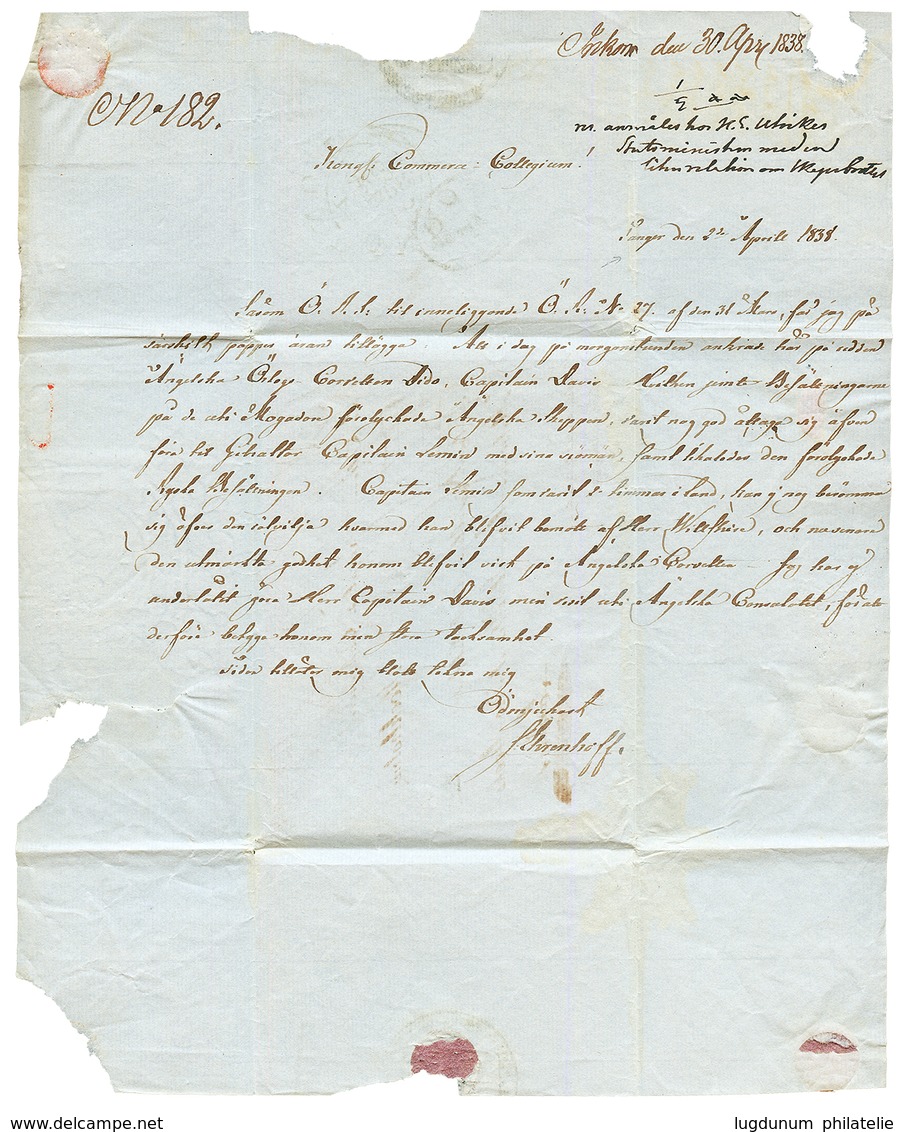 Inkom den 30. Apr. 1838.
No 182.
1/5
anmäles hos H.E. Utrikes
Statsministern med en
om Skeppsbrottet
Kongl. Commerce-Collegium!
Tanger den 2 Aprill 1838.
Såsom Ö. A. S. til inneliggande Ö. A. No 27. af den 31 Mars, får jag på
särskilt papper äran tillägga. Att i dag på morgonstunden ankrade här på redden
Ängelska Örlogs Corvetten Dido, Capitain Davis hvilken jemte Besättningarne
på de uti Mogador förolyckade Ängelska Skeppen, varit nog god åttaga sig äfven
föra til Gibraltar Capitain Lemin med sina sjömän, samt likaledes den förolyckade
Besättningen. Capitain Lemin som varit hemma i land, kan ej nog berömma
sig öfver den välvilja hvarmed han blefvit bemött af Herr Willshire, och navarande
den utmärkta godhet honom blefvit visst på Ängelska Corvetten Jag har ej
underlåtit göra Herr Capitain Davis min visit uti Ängelska Consulatet, för att
derföre betyga honom min stora tacksamhet.
tillåter mig teckna mig
Ödmjukast
J. Ehrenhoff.
www.delcampe.net
lugdunum philatelie